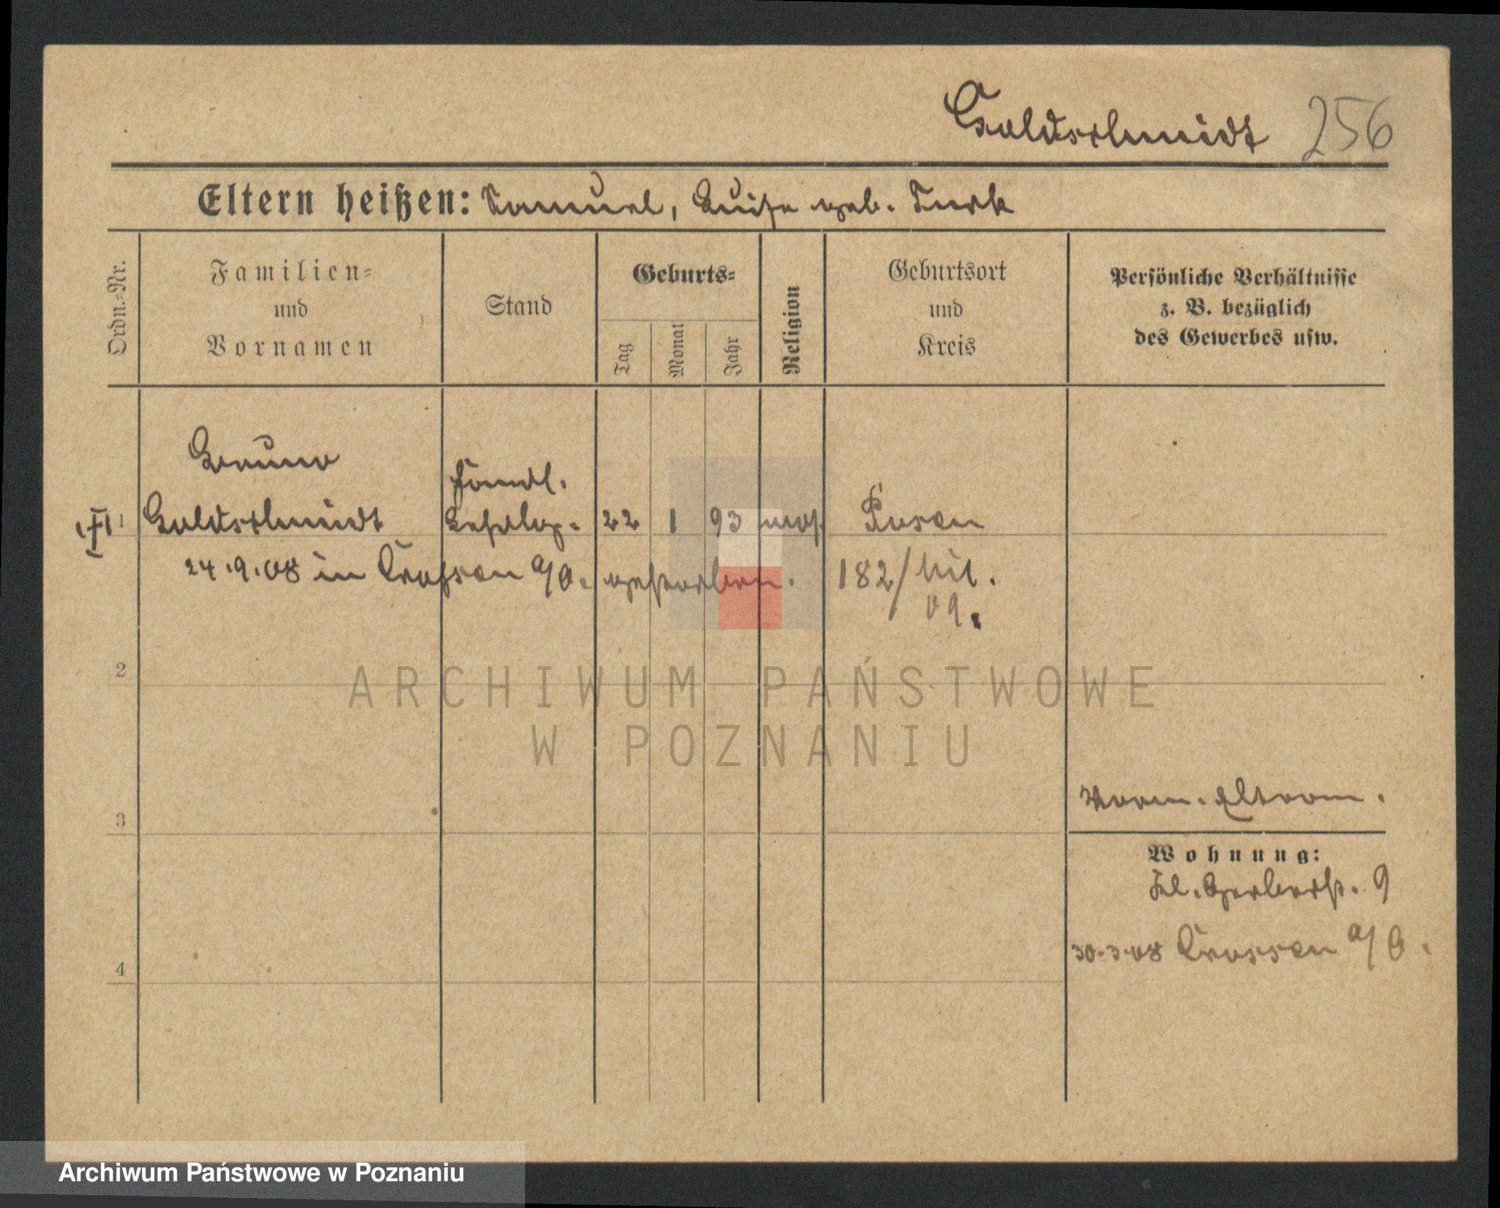 Goldschmidt 256
Eltern heißen: Samuel, Luise geb. Turk
Ordn.=Nr.
Familien=
und
Vornamen
Stand
Geburts=
Tag
Monat
Jahr
Religion
Geburtsort
und
Kreis
Persönliche Verhältnisse
z. B. bezüglich
des Gewerbes usw.
Bruno
Handl.
1 Goldschmidt Lehrlg. 22 1 93 mos. Posen
24.9.08 in Crossen a/O. gestorben. 182/
09.
2
ARCHIWUM PAŃSTWOWE
W POZNANIU
3
Vorm. Eltern.
Wohnung:
Kl. Gerberst. 9
30.3.08 Crossen a/O.
4
Archiwum Państwowe w Poznaniu